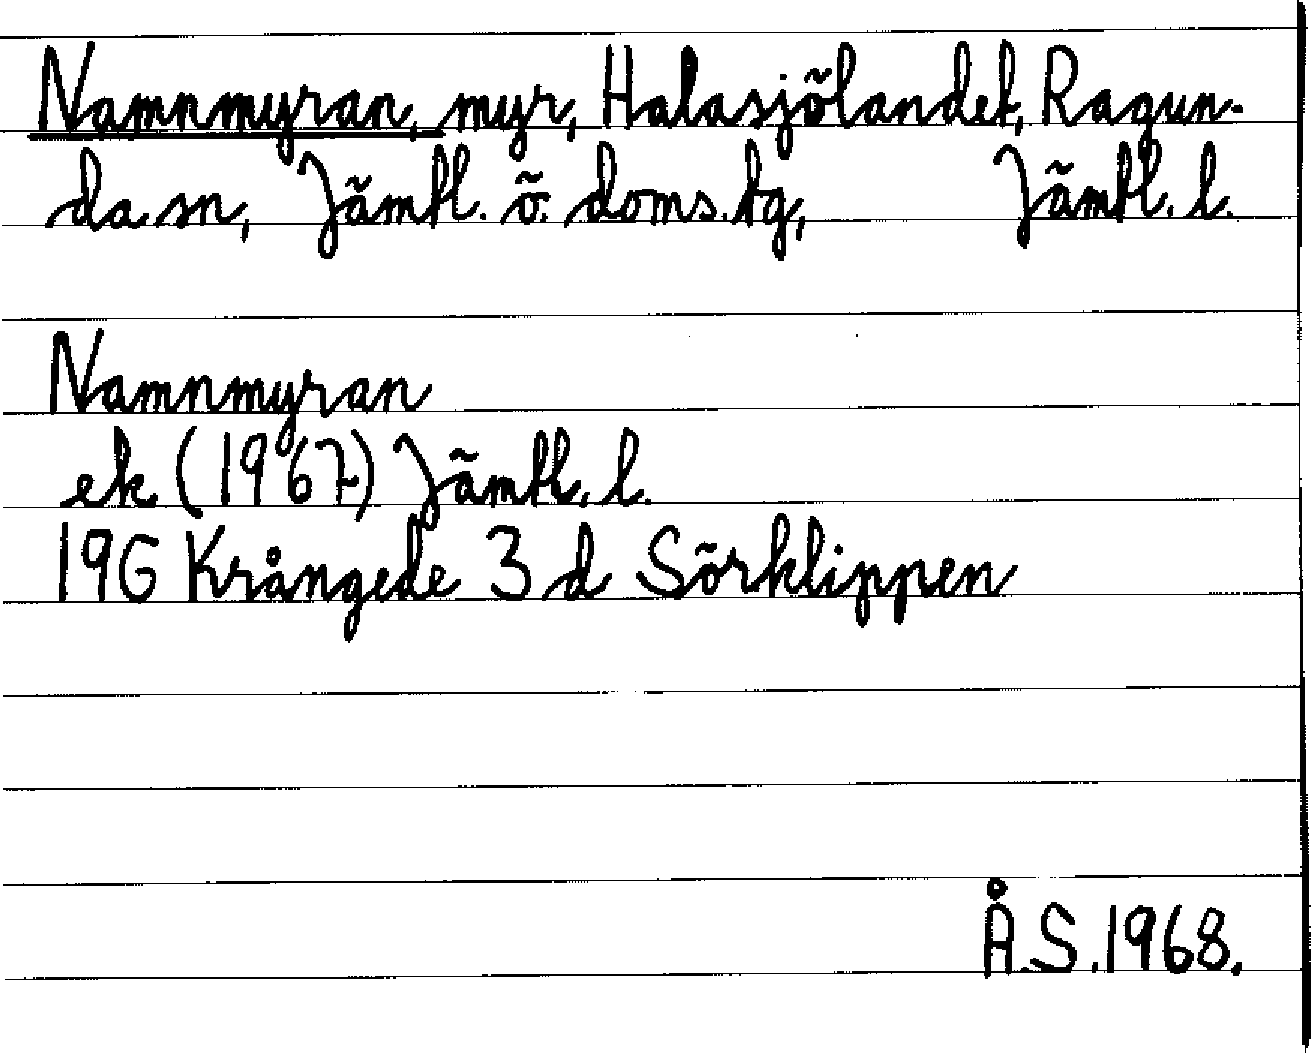 Namnmyran, myr, Halasjölandet, Ragun-
da sn, Jämtl. ö. doms.tg, Jämtl. l.
Namnmyran
ek (1967) Jämtl. l.
19G Krångede 3 d Sörklippen
Å.S. 1968.